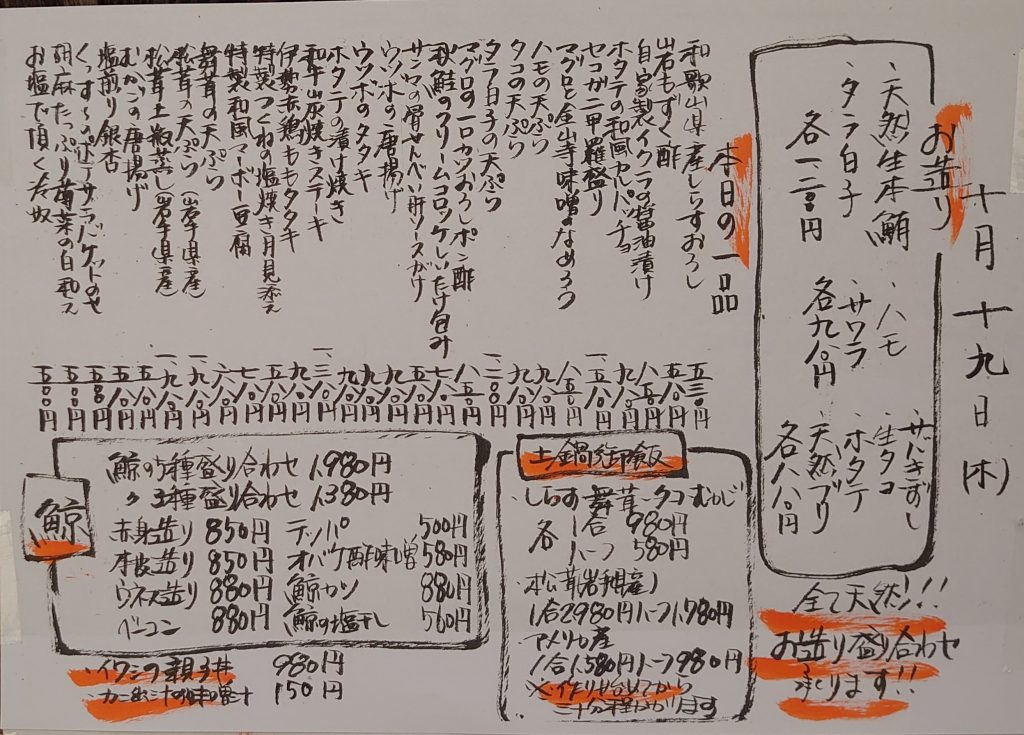 十月十九日(木)
お造り
・天然生本鮪
・タラ白子
各一二〇〇円
・ハモ
・サワラ
各九八〇円
・サバきずし
・生タコ
・ホタテ
・天然ブリ
各八八〇円
全て天然!!
お造り盛り合わせ
承ります!!
本日の一品
和歌山県産しらすおろし 五三〇円
岩もずく酢 五八〇円
自家製イクラの醤油漬け 八五〇円
ホタテの和風カルパッチョ 九八〇円
セコガニ甲羅盛り 一、五八〇円
マグロと金山寺味噌のなめろう 八五〇円
ハモの天ぷら 九八〇円
タコの天ぷら 九八〇円
タラ白子の天ぷら 一、二〇〇円
マグロの一口カツおろしポン酢 八五〇円
秋鮭のクリームコロッケしいたけ包み 七八〇円
サンマの骨せんべい肝ソースがけ 五八〇円
ウツボの唐揚げ 九八〇円
ウツボのタタキ 九八〇円
ホタテの漬け焼き 九八〇円
和牛炭焼きステーキ 一、三八〇円
伊勢赤鶏ももタタキ 九八〇円
特製つくねの塩焼き月見添え 七八〇円
特製和風マーボー豆腐 八八〇円
舞茸の天ぷら 六八〇円
松茸の天ぷら(岩手県産) 一、九八〇円
松茸土瓶蒸し岩手県産 一、九八〇円
むかごの唐揚げ 五八〇円
塩煎り銀杏 五八〇円
くっす~のポテサラバケットのせ 五五〇円
胡麻たっぷり菊菜の白和え 五五〇円
お塩で頂く冷奴 五〇〇円
土鍋御飯
しらす 舞茸 タコ むかご
各 一合 980円
ハーフ 580円
松茸(岩手県産)
1合2980円ハーフ1,780円
アメリカ産
1合1,580円ハーフ980円
※作り始めてから
三十分程かかります
鯨
鯨の5種盛り合わせ 1,980円
〃 三種盛り合わせ 1,380円
赤身造り 850円
本皮造り 850円
ウネス造り 880円
ベーコン 880円
テッパ 500円
オバケ酢味噌 580円
鯨カツ 880円
鯨の塩干し 560円
・イワシの親子丼 980円
・カニ出汁の味噌汁 150円